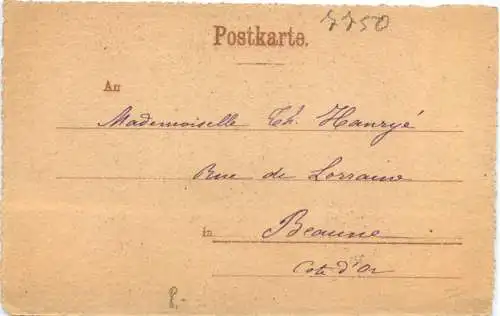 7750
Postkarte.
An
Mademoiselle Th. Hanryé
Rue de Lorraine
in Beaune
Cote d'Or